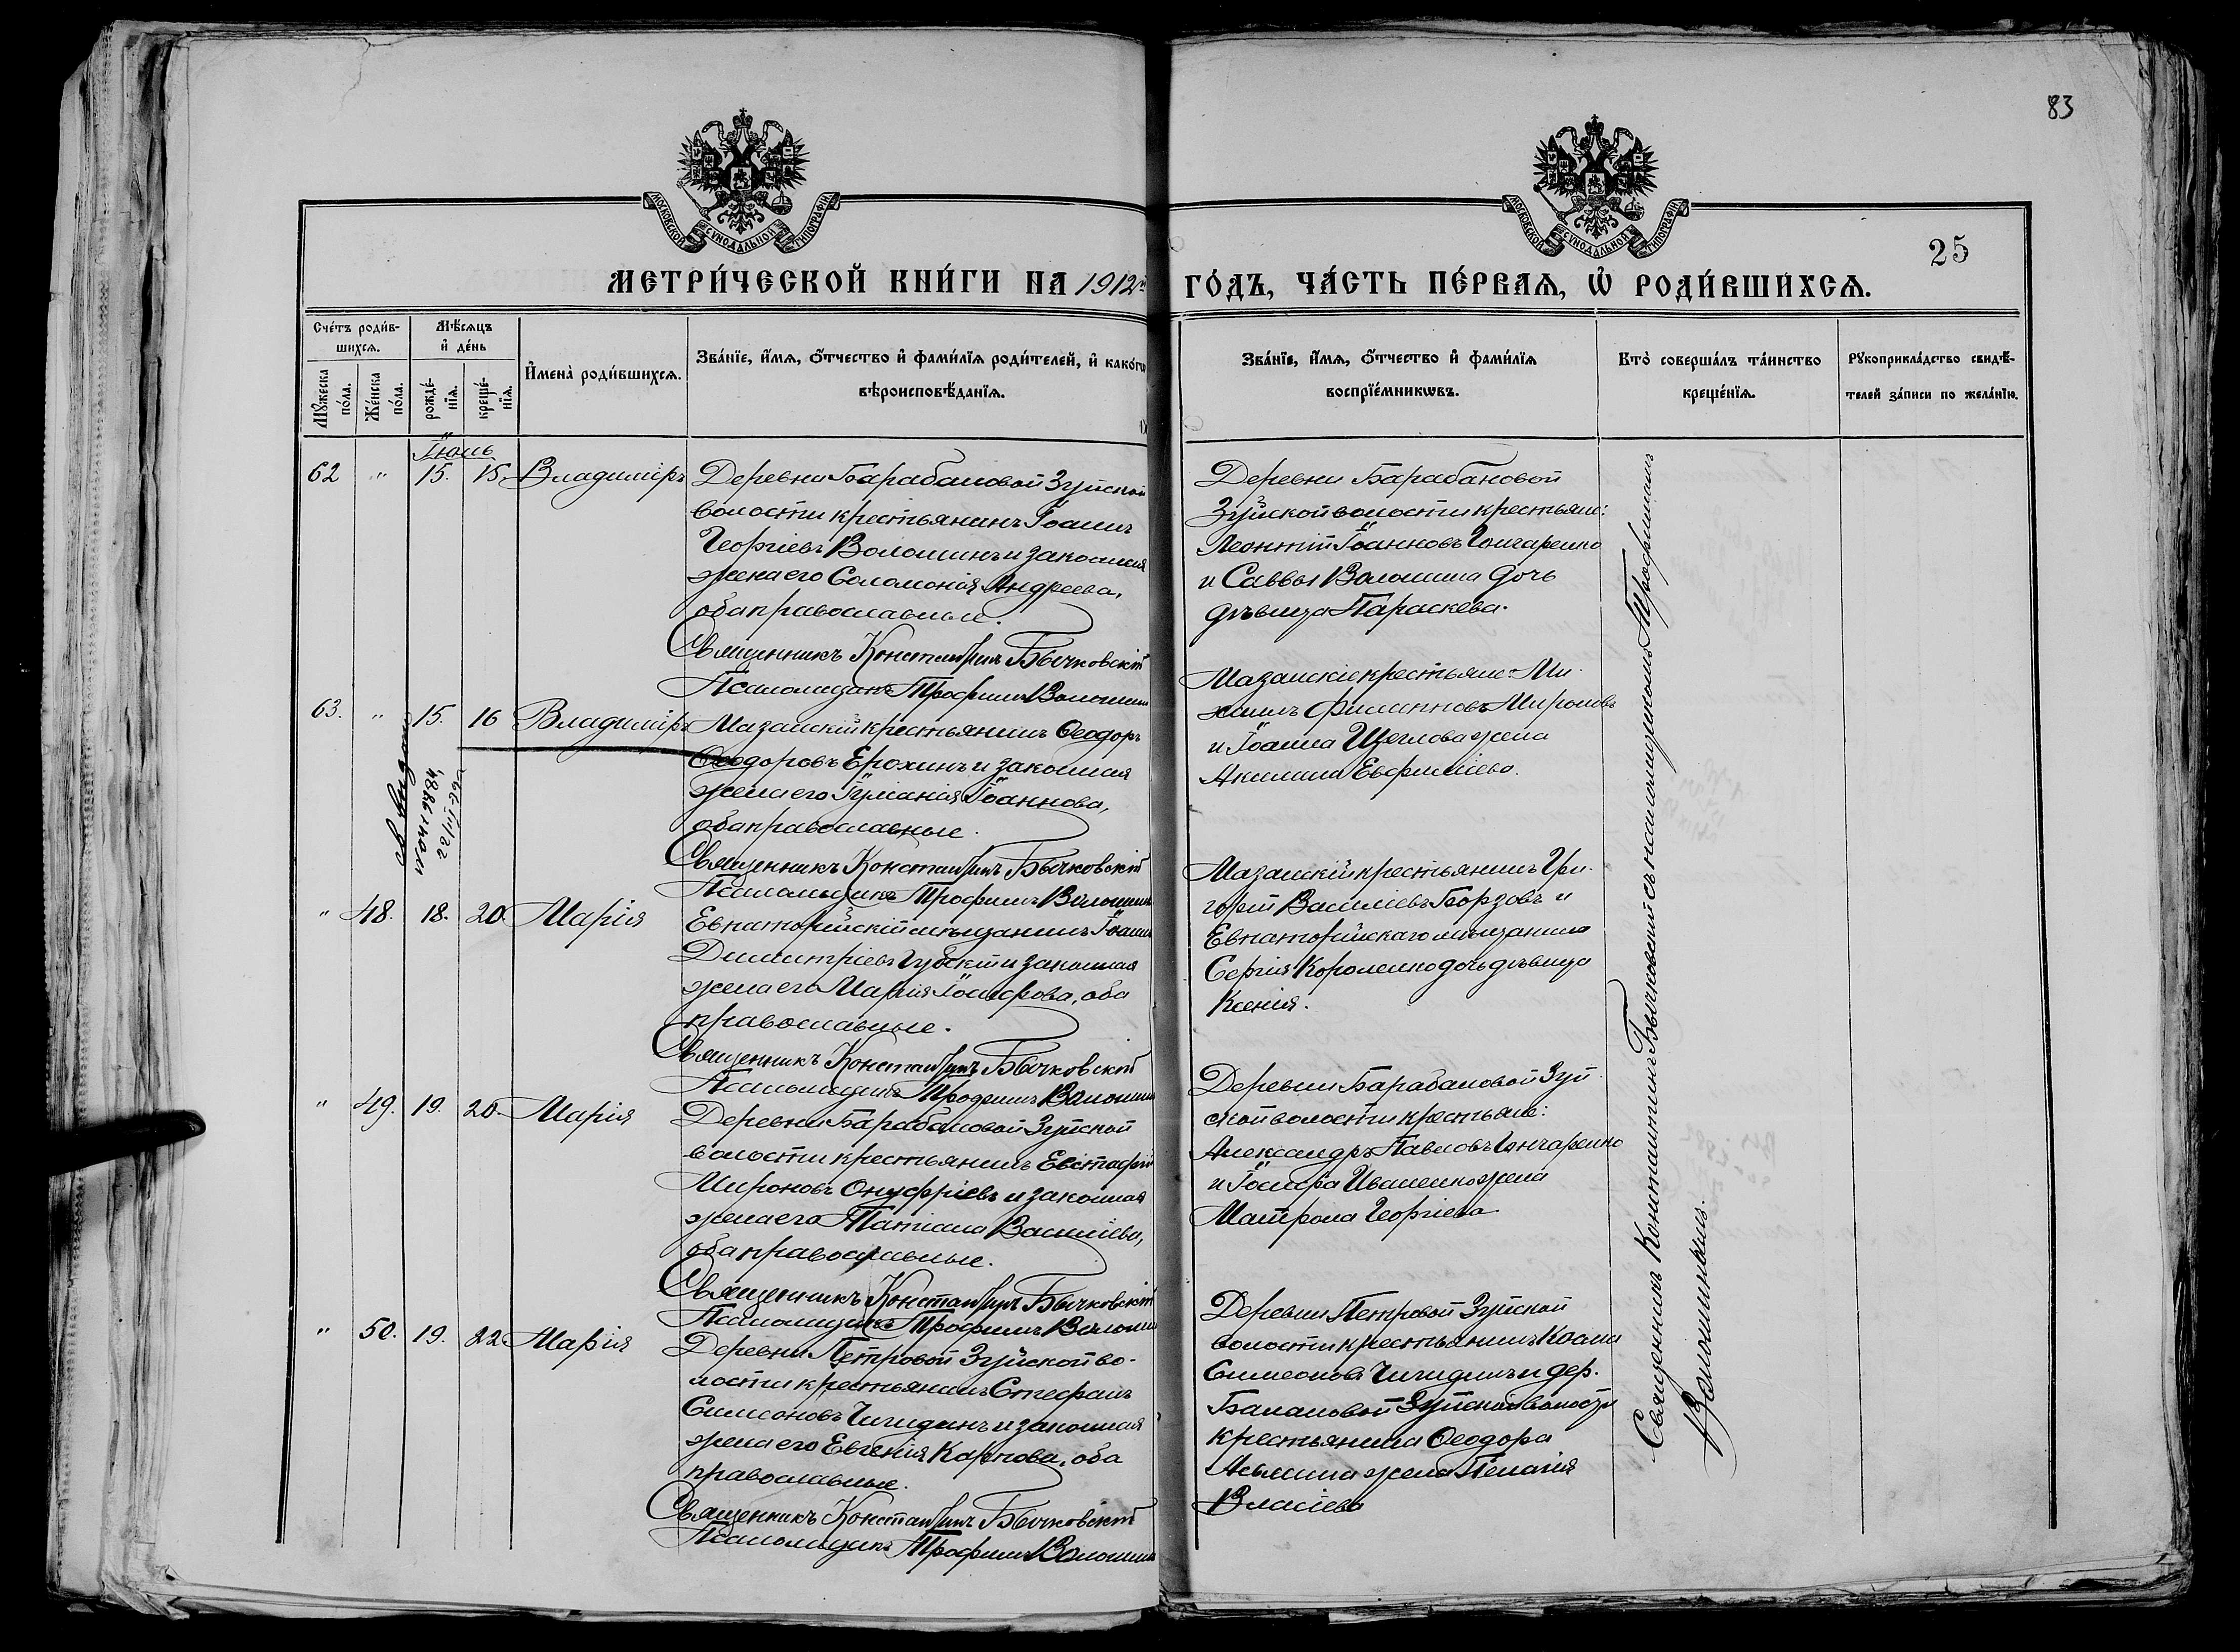 83
25
МОСКОВСКОЙ СѴНОДАЛЬНОЙ ТИПОГРАФІИ
МОСКОВСКОЙ СѴНОДАЛЬНОЙ ТИПОГРАФІИ
МЕТРИ́ЧЕСКОЙ КНИ́ГИ НА 1912й ГО́ДЪ, ЧА́СТЬ ПЕ́РВАѦ, Ѡ҆ РОДИ́ВШИХСѦ.
Сче́тъ роди́в-
шихсѧ.
Мꙋ́жеска по́ла.
Же́нска по́ла.
Мѣ́сѧцъ
и҆ де́нь
рожде́-
нїѧ.
креще́-
нїѧ.
И҆мена̀ роди́вшихсѧ.
Зва́нїе, и҆́мѧ, ѻ҆́тчество и҆ фами́лїѧ роди́телей, и҆ како́гѡ
вѣроисповѣ́данїѧ.
Зва́нїе, и҆́мѧ, ѻ҆́тчество и҆ фами́лїѧ
воспрїе́мникѡвъ.
Кто̀ соверша́лъ та́инство
креще́нїѧ.
Рꙋкоприкла́дство свидѣ́-
телей за́писи по жела́нїю.
Іюнь
62 " 15. 15. Владиміръ
Деревни Барабановой Зуйской
волости крестьянинъ Іоаннъ
Георгіевъ Волошинъ и законная
жена его Соломонія Андреева,
оба православные.
Священникъ Константинъ Бычковскій
Псаломщикъ Трофимъ Волошинъ
Деревни Барабановой
Зуйской волости крестьяне:
Леонтій Іоанновъ Гончаренко
и Саввы Волошина дочь
дѣвица Параскева.
63. " 15. 16 Владиміръ
Мазанскій крестьянинъ Ѳеодоръ
Ѳеодоровъ Ерохинъ и законная
жена его Іуліанія Іоаннова,
оба православные.
Священникъ Константинъ Бычковскій
Псаломщикъ Трофимъ Волошинъ
Мазанскіе крестьяне: Ми-
хаилъ Филипповъ Мироновъ
и Іоанна Щеглова жена
Акилина Евфиміева.
" 48. 18. 20. Марія
Евпаторійскій мѣщанинъ Іоаннъ
Димитріевъ Губскій и законная
жена его Марія Іосифова, оба
православные.
Священникъ Константинъ Бычковскій
Псаломщикъ Трофимъ Волошинъ
Мазанскій крестьянинъ Гри-
горій Василіевъ Борзовъ и
Евпаторійскаго мѣщанина
Сергія Короленко дочь дѣвица
Ксенія.
" 49. 19. 20. Марія
Деревни Барабановой Зуйской
волости крестьянинъ Евстафій
Мироновъ Онуфріевъ и законная
жена его Татіана Василіева,
оба православные.
Священникъ Константинъ Бычковскій
Псаломщикъ Трофимъ Волошинъ
Деревни Барабановой Зуй-
ской волости крестьяне:
Александръ Павловъ Гончаренко
и Іосифа Иваненко жена
Матрона Георгіева
" 50. 19. 22. Марія
Деревни Петровой Зуйской во-
лости крестьянинъ Стефанъ
Симеоновъ Чигидинъ и законная
жена его Евгенія Карпова, оба
православные.
Священникъ Константинъ Бычковскій
Псаломщикъ Трофимъ Волошинъ
Деревни Петровой Зуйской
волости крестьянинъ Косма
Симеоновъ Чигидинъ и дер.
Балановой Зуйской волости
крестьянина Ѳеодора
жена Пелагія
Власіева
Священникъ Константинъ Бычковскій съ псаломщикомъ Трофимомъ
Волошинымъ.